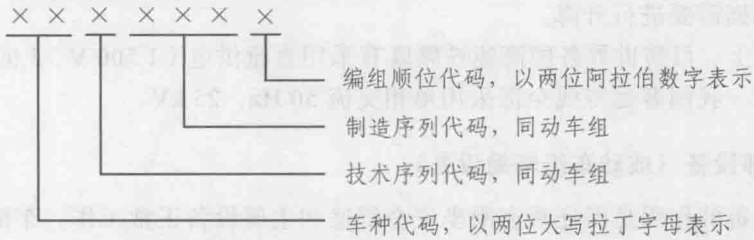 × × × × × × ×
编组顺位代码，以两位阿拉伯数字表示
制造序列代码，同动车组
技术序列代码，同动车组
车种代码，以两位大写拉丁字母表示